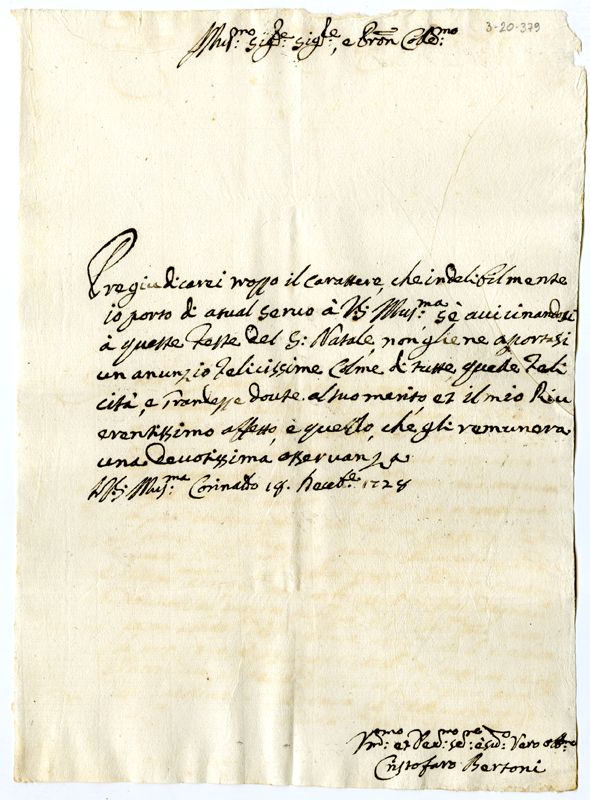 3-20-379
Illus:mo Sig:re Sig:re, e Pron Colled:mo
Pregiudicarei troppo il carattere, che indelebilmente
io porto di atual servo à VS: Illus:ma sè avicinandosi
à queste Feste del S: Natale, non gliene aportasi
un anunzio Felicissime Colme di tutte quele Feli
cità, e Grandezze doute al suo merito, et il mio Riu
erentissimo affetto, è quello, che gli remunera
una devotissima osservanza
VS: Illus:ma Corinalto 18. Decebre 1728
et Vero
Cristofaro Bertoni